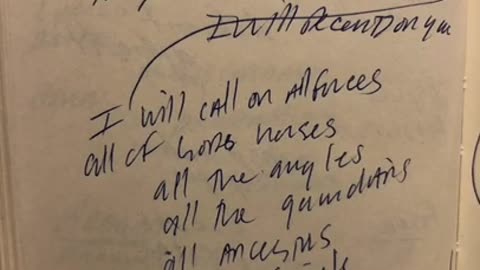 I will descend on you
I will call on All forces
all of horses
all the angles
all the guardains
all Ancestors